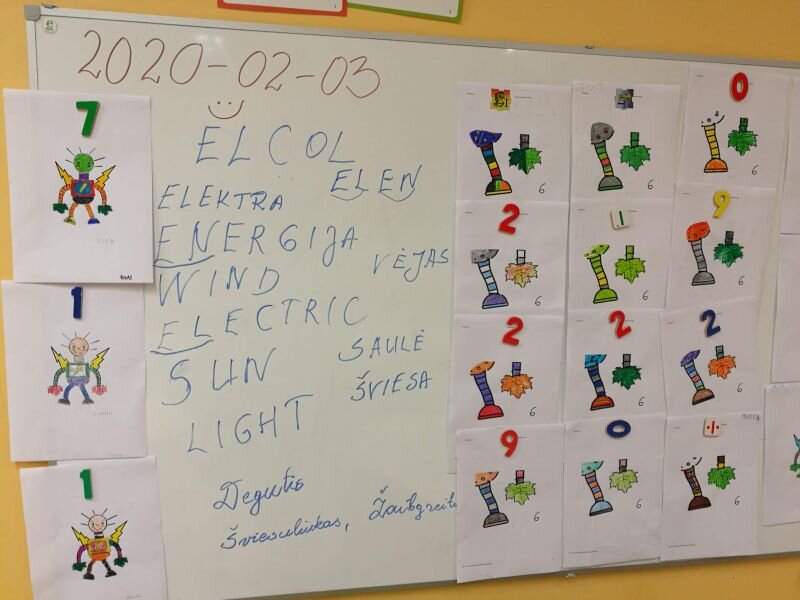 2020-02-03
ELCOL
ELEN
ELEKTRA
ENERGIJA
VĖJAS
WIND
ELECTRIC
SAULĖ
SUN
ŠVIESA
LIGHT
Degutis
Šviesuliukas,
7
1
1
0
6 6 6
2 9
6 6 6
2 2 2
6 6 6
9 0 ÷
6 6 6